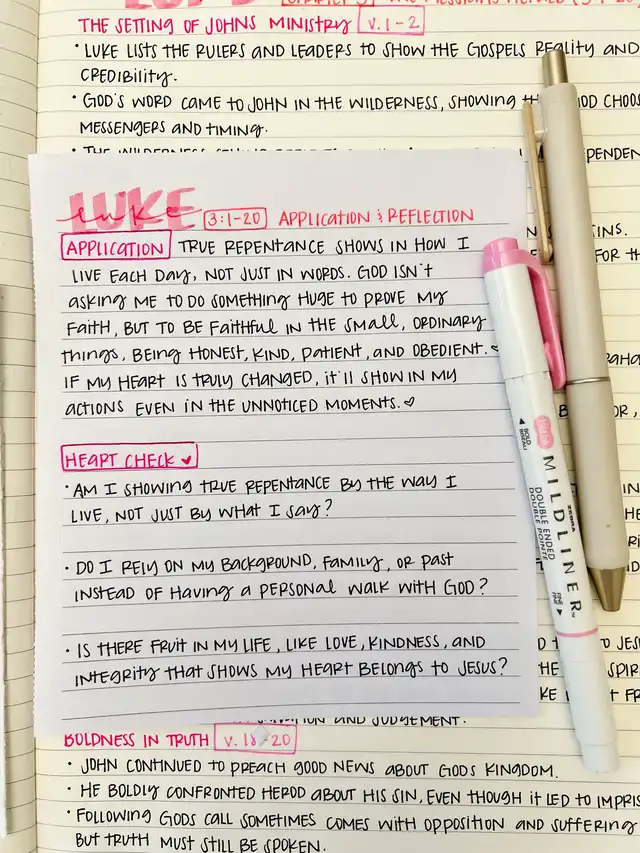 THE SETTING OF JOHNS MINISTRY v.1-2
• LUKE LISTS THE RULERS AND LEADERS TO SHOW THE GOSPELS REALITY AND
CREDIBILITY.
• GOD'S WORD CAME TO JOHN IN THE WILDERNESS, SHOWING
MESSENGERS AND TIMING.
LUKE
luke 3:1-20 APPLICATION & REFLECTION
APPLICATION TRUE REPENTANCE SHOWS IN HOW I
LIVE EACH DAY, NOT JUST IN WORDS. GOD ISN'T
ASKING ME TO DO SOMETHING HUGE TO PROVE MY
FAITH, BUT TO BE FAITHFUL IN THE SMALL, ORDINARY
THINGS, BEING HONEST, KIND, PATIENT, AND OBEDIENT.
IF MY HEART IS TRULY CHANGED, IT'LL SHOW IN MY
ACTIONS EVEN IN THE UNNOTICED MOMENTS. ♡
HEART CHECK ♥
• AM I SHOWING TRUE REPENTANCE BY THE WAY I
LIVE, NOT JUST BY WHAT I SAY?
• DO I RELY ON MY BACKGROUND, FAMILY, OR PAST
INSTEAD OF HAVING A PERSONAL WALK WITH GOD?
• IS THERE FRUIT IN MY LIFE, LIKE LOVE, KINDNESS, AND
INTEGRITY THAT SHOWS MY HEART BELONGS TO JESUS?
AND JUDGEMENT.
BOLDNESS IN TRUTH v. 18-20
• JOHN CONTINUED TO PREACH GOOD NEWS ABOUT GODS KINGDOM.
• HE BOLDLY CONFRONTED HEROD ABOUT HIS SIN, EVEN THOUGH IT LED TO
• FOLLOWING GODS CALL SOMETIMES COMES WITH OPPOSITION AND SUFFERING
BUT TRUTH MUST STILL BE SPOKEN.
BOLD
ZEBRA
MILDLINER
DOUBLE ENDED
FINE